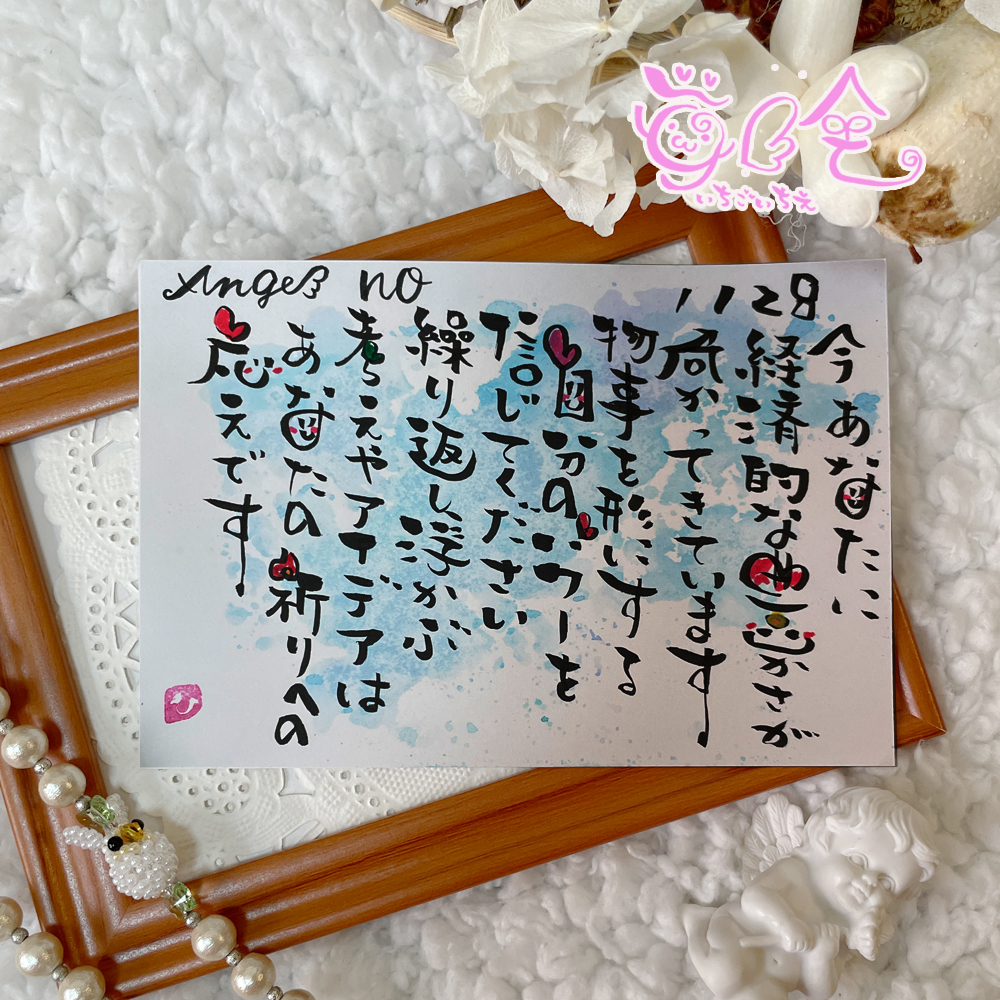 Angel no 1128
今あなたに
経済的な豊かさが
向かってきています
物事を形にする
自分のパワーを
信じてください
繰り返し浮かぶ
考えやアイデアは
あなたの祈りへの
応えです
いちごいちえ